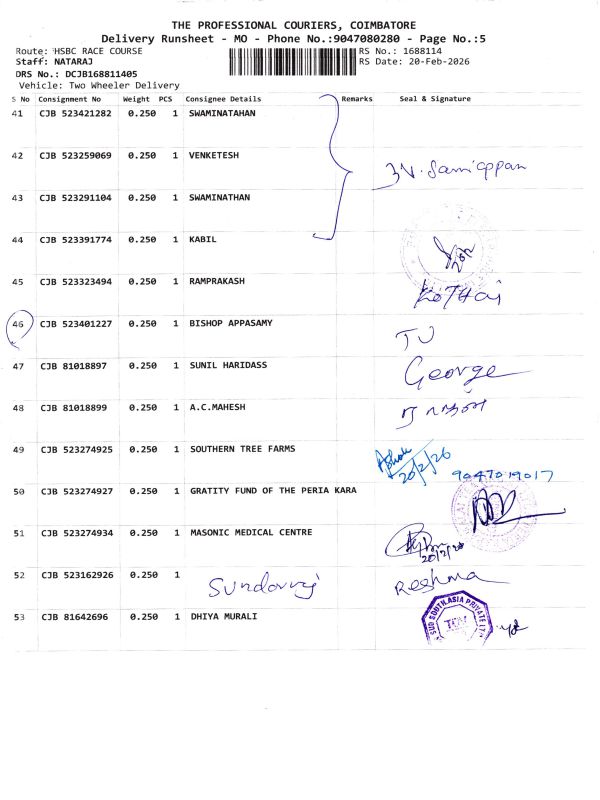 THE PROFESSIONAL COURIERS, COIMBATORE
Delivery Runsheet - MO - Phone No.:9047080280 - Page No.:5
Route: HSBC RACE COURSE RS No.: 1688114
Staff: NATARAJ RS Date: 20-Feb-2026
DRS No.: DCJB168811405
Vehicle: Two Wheeler Delivery
S No Consignment No Weight PCS Consignee Details Remarks Seal & Signature
41 CJB 523421282 0.250 1 SWAMINATAHAN
42 CJB 523259069 0.250 1 VENKETESH
43 CJB 523291104 0.250 1 SWAMINATHAN
44 CJB 523391774 0.250 1 KABIL
45 CJB 523323494 0.250 1 RAMPRAKASH KOTHAI
46 CJB 523401227 0.250 1 BISHOP APPASAMY
47 CJB 81018897 0.250 1 SUNIL HARIDASS George
48 CJB 81018899 0.250 1 A.C.MAHESH
49 CJB 523274925 0.250 1 SOUTHERN TREE FARMS 20/2/26 9047019017
50 CJB 523274927 0.250 1 GRATITY FUND OF THE PERIA KARA
51 CJB 523274934 0.250 1 MASONIC MEDICAL CENTRE
52 CJB 523162926 0.250 1 Sundarraj Reshma
53 CJB 81642696 0.250 1 DHIYA MURALI SUD SOUTH ASIA PRIVATE LTD